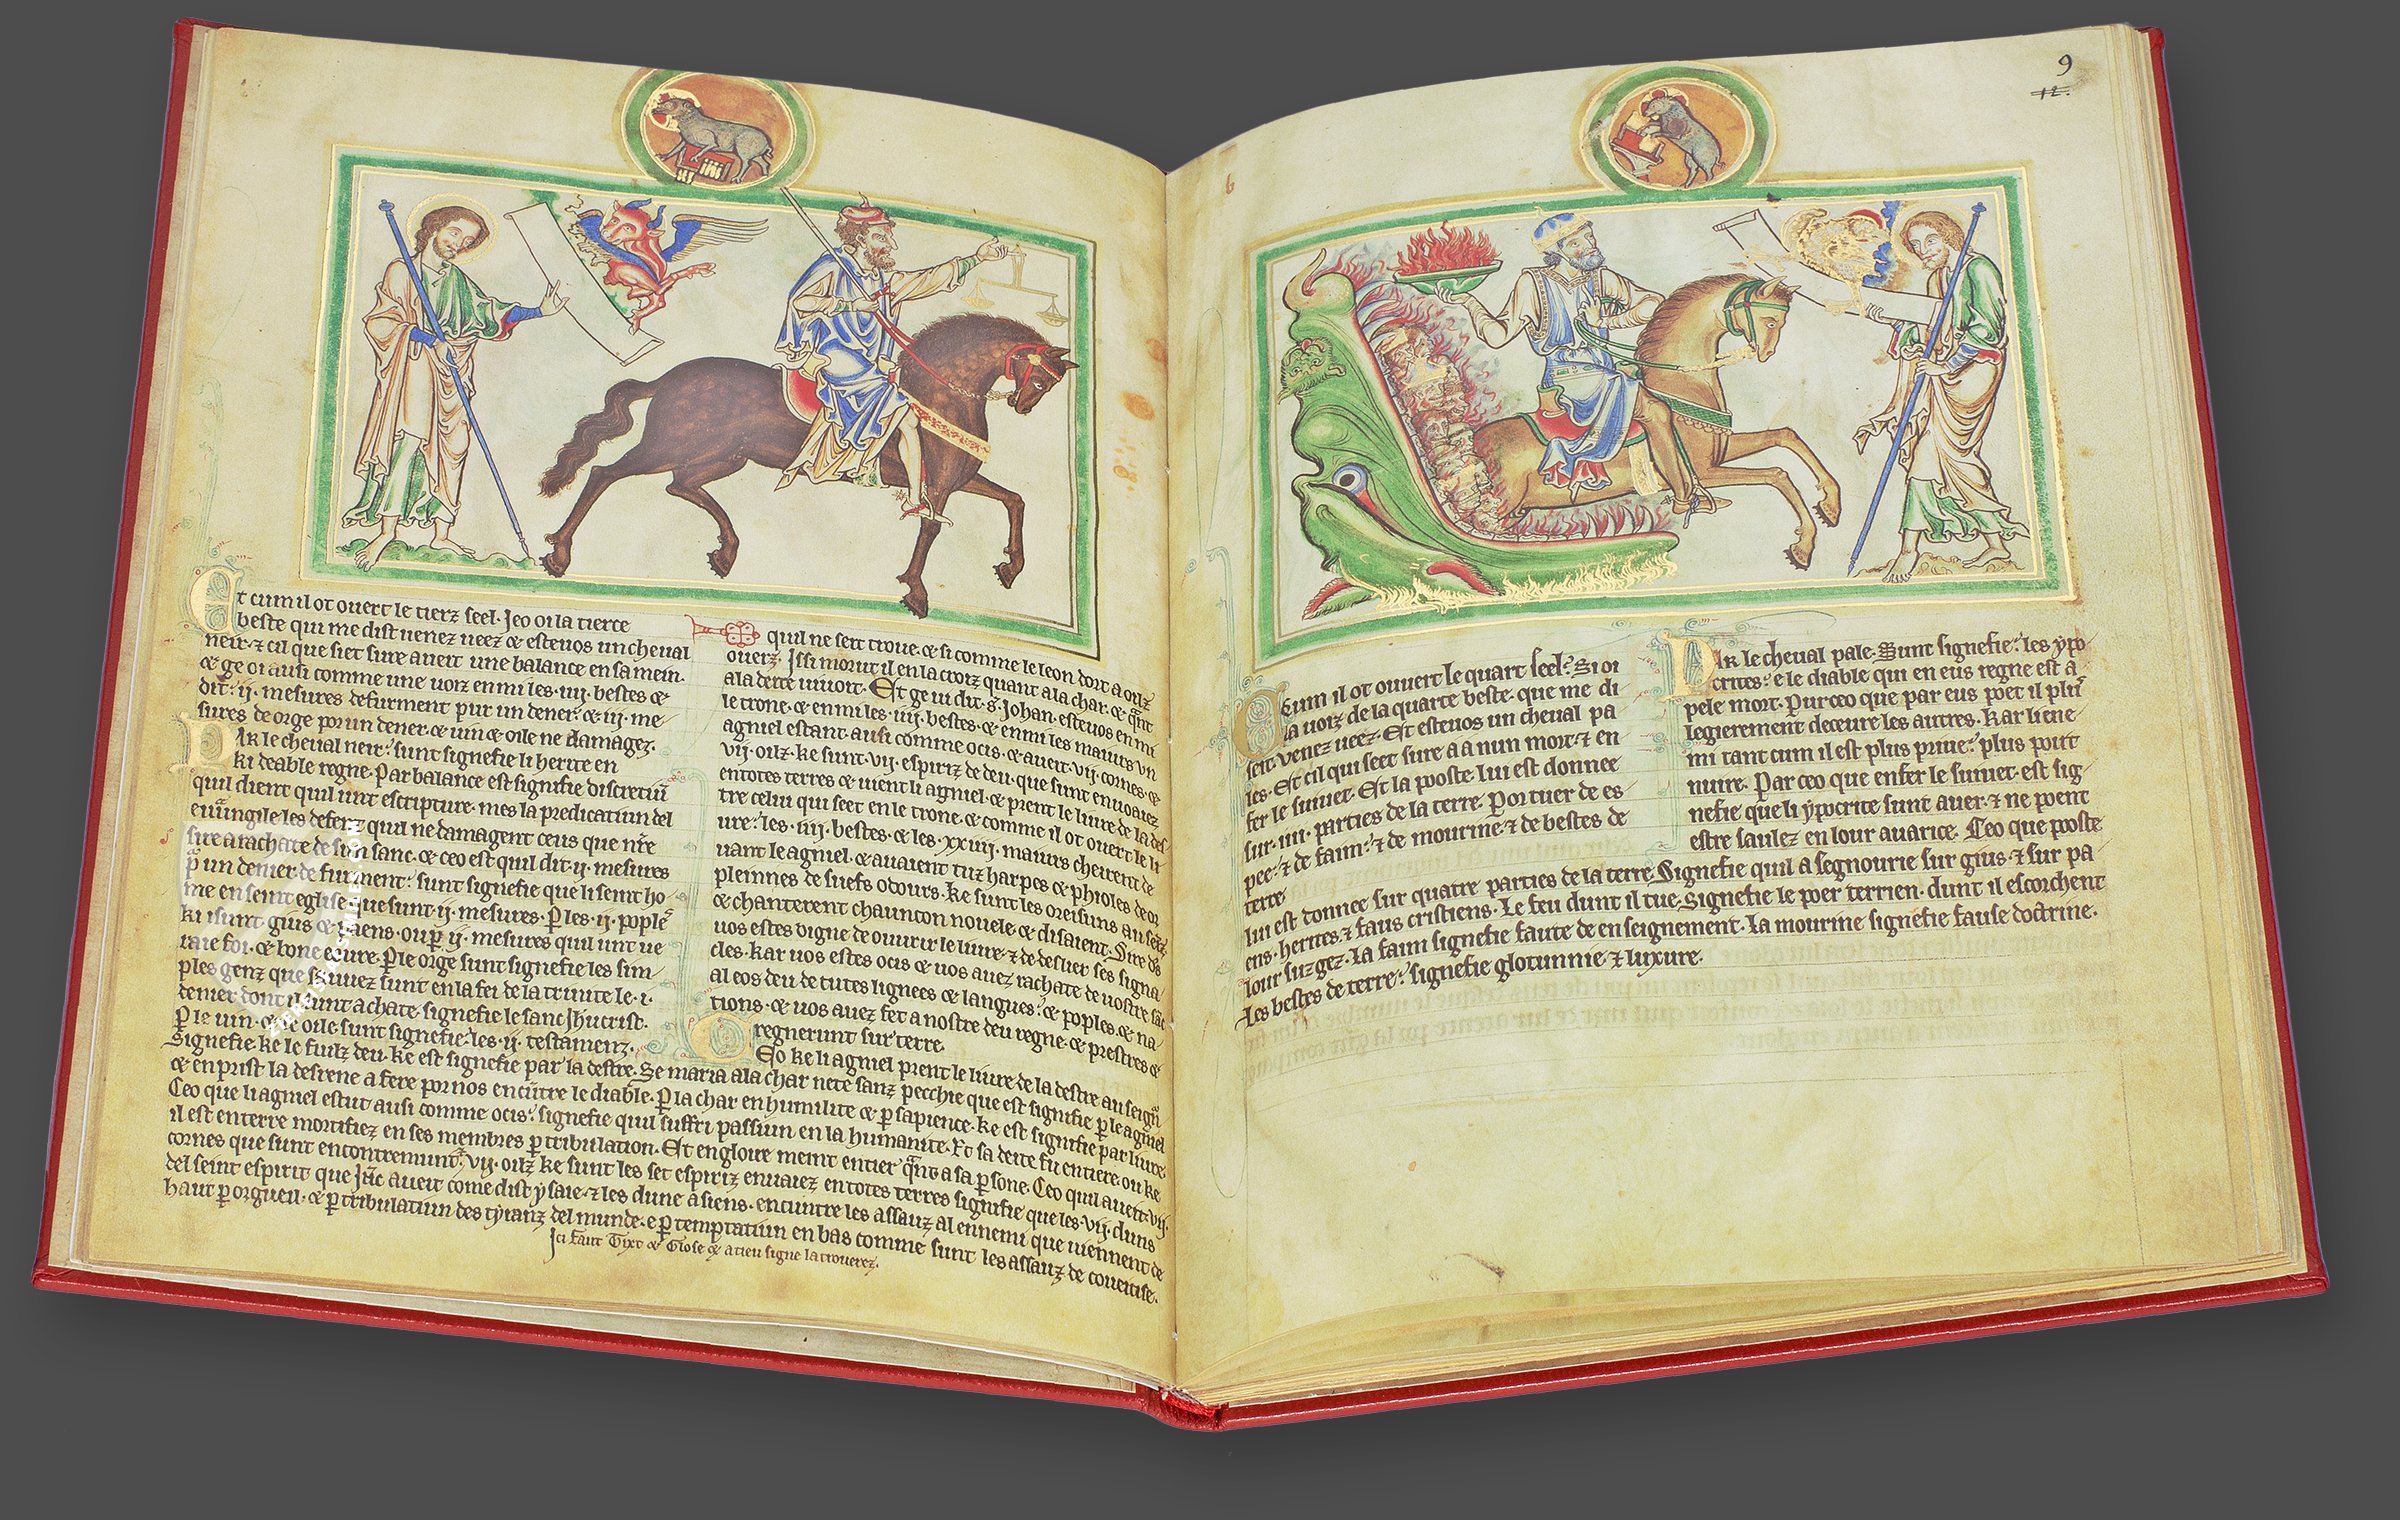 Et cum il ot ouert le tierz seel. Jeo oi la tierce
beste qui me dist uenez ueez & esteuos un cheual
neir. & cil que siet sure aueit une balance en sa mein.
& ge oi ausi comme une uoiz enmi les .iiij. bestes &
dit: .ij. mesures de furment pur un dener. & .iij. me
sures de orge por un dener. & uin & oile ne damagez.
Par le cheual neir: sunt signefie li herite en
ki deable regne. Par balance est signifie discretiun
quil dient quil unt escripture. mes la predicatiun del
euangile les defent quil ne damagent ceus que nre
sire a rachate de sun sanc. & ceo est quil dit .ij. mesures
p un denier de furment: sunt signefie que li seint ho
me en seint eglise que sunt .ij. mesures. P les .ij. pople
ki i sunt gius & paens. ou p .ij. mesures quil unt ue
raie foi. & bone eoure. P le orge sunt signefie les sim
ples genz que sauuez sunt en la fei de la trinite le .i.
denier dont il sunt achate. signefie le sanc Jhu crist.
P le uin. & le oile sunt signefie les .ij. testamenz.
quil ne seit troue. & si comme le leon dort a oilz
ouerz. Issi morut il en la croiz quant a la char. & qnt
a la deite uiuoit. Et ge ui dit .S. Johan. esteuos enmi
le trone. & enmi les .iiij. bestes. & enmi les maiurs un
agniel estant. ausi comme ocis. & aueit .vij. cornes. &
.vij. oilz. ke sunt .vij. espiriz de deu. que sunt enuoaiez
en totes terres & uient li agniel. & prent le liure de la des
tre celui qui seet en le trone. & comme il ot ouert le li
ure: les .iiij. bestes. & les .xxiiij. maiurs cheurent de
uant le agniel. & auaient tuz harpes & phioles de or
pleinnes de suefs odours. ke sunt les oreisuns au seiz
& chanterent chaunton nouele & disaient. Sire ds
uos estes digne de ouurir le liure. & de deslier ses signa
cles. kar uos estes ocis & uos auez rachate de uostre sac
al eos deu de tutes lignees & langues: & poples. & na
tions. & uos auez fet a nostre deu regne. & prestres &
regnerunt sur terre.
Ceo ke li agniel prent le liure de la destre au seign
Signefie. ke le fiulz deu. ke est signefie par la destre. Se maria a la char nete sanz pecchie que est signifie p le agniel
& en prist la desrene a fere por nos encuntre le diable. P la char en humilite & p sapience. ke est signifie par liure.
Ceo que li agniel estut ausi comme ocis: signefie quil suffri passiun en la humanite. Et sa deite fu entiere. ou ke
il est en terre mortifiez en ses membres p tribulation. Et en gloire meint entier qnt a sa psone. Ceo quil aueit .vij.
cornes que sunt encontremunt: .vij. oilz ke sunt les set espiriz enuaiez en totes terres signifie que les .vij. duns
del seint espirit que Jhc aueit come dist ysaie. & les dune a siens. encuntre les assauz al ennemi que uiennent de
haut p orgueil. & p tribulatiun des tyranz del munde. e p temptatiun en bas comme sunt les assauz de coueitise.
Ici faut Tixt & Glose & a tieu signe la trouerez.
9
12.
6
Cum il ot ouuert le quart seel: Si oi
la uoiz de la quarte beste. que me di
seit. uenez ueez. Et esteuos un cheual pa
les. Et cil qui seet sure a a nun mort. & en
fer le siuuet. Et la poste lui est donnee
sur .iiii. parties de la terre. Por tuer de es
pee: & de faim: & de mourine. & de bestes de
terre
Par le cheual pale. Sunt signefie: les ypo
crites: e le diable qui en eus regne est a
pele mort. Pur ceo que par eus poet il plus
legierement deceure les autres. Kar li ene
mi tant cum il est plus priue: plus poit
nuire. Par ceo que enfer le siuuet. est sig
nefie que li ypocrite sunt auer. & ne poent
estre saulez en lour auarice. Ceo que poste
lui est donnee sur quatre parties de la terre. Signefie quil a segnourie sur gius. & sur pa
ens. herites. & faus cristiens. Le feu dunt il tue. signefie le poer terrien. dunt il escorchent
lour suzgez. La faim signefie faute de enseignement. La mourine signefie fause doctrine.
Les bestes de terre: signefie glotunnie. & luxure.